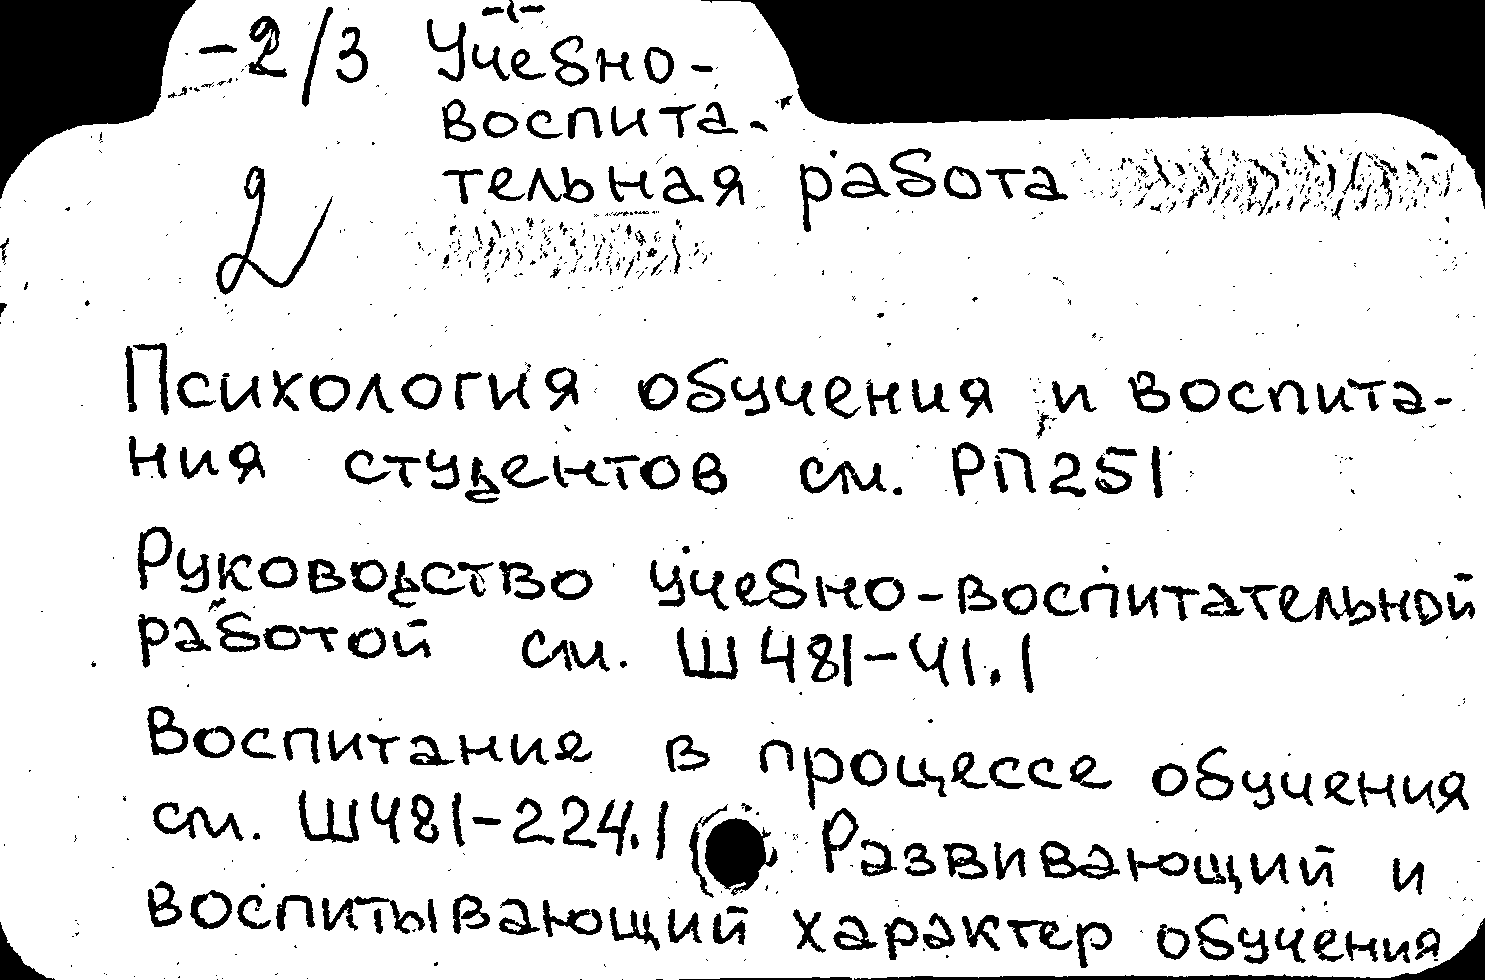 -2/3 Учебно-
воспита-
тельная работа
2
Психология обучения и воспита-
ния студентов см. РП251
Руководство учебно-воспитательной
работой см. Ш481-41.1
Воспитание в процессе обучения
см. Ш481-224.1 Развивающий и
воспитывающий характер обучения